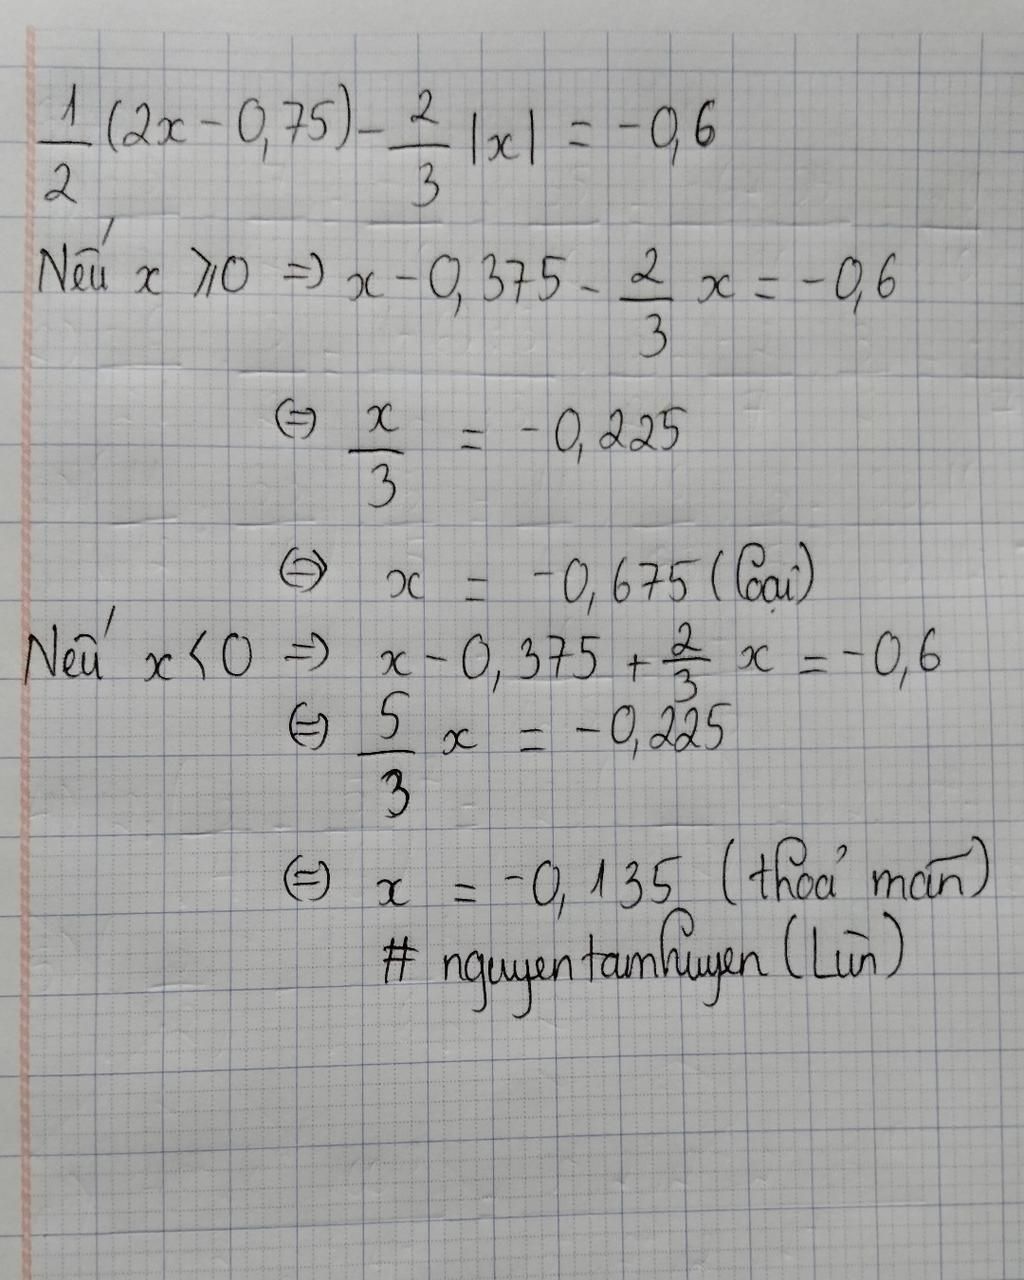 1/2 (2x - 0,75) - 2/3 |x| = -0,6
Nếu x ⩾ 0 => x - 0,375 - 2/3 x = -0,6
<=> x/3 = -0,225
<=> x = -0,675 (loại)
Nếu x < 0 => x - 0,375 + 2/3 x = -0,6
<=> 5/3 x = -0,225
<=> x = -0,135 (thoả mãn)
# nguyentamhuyen (Lùn)